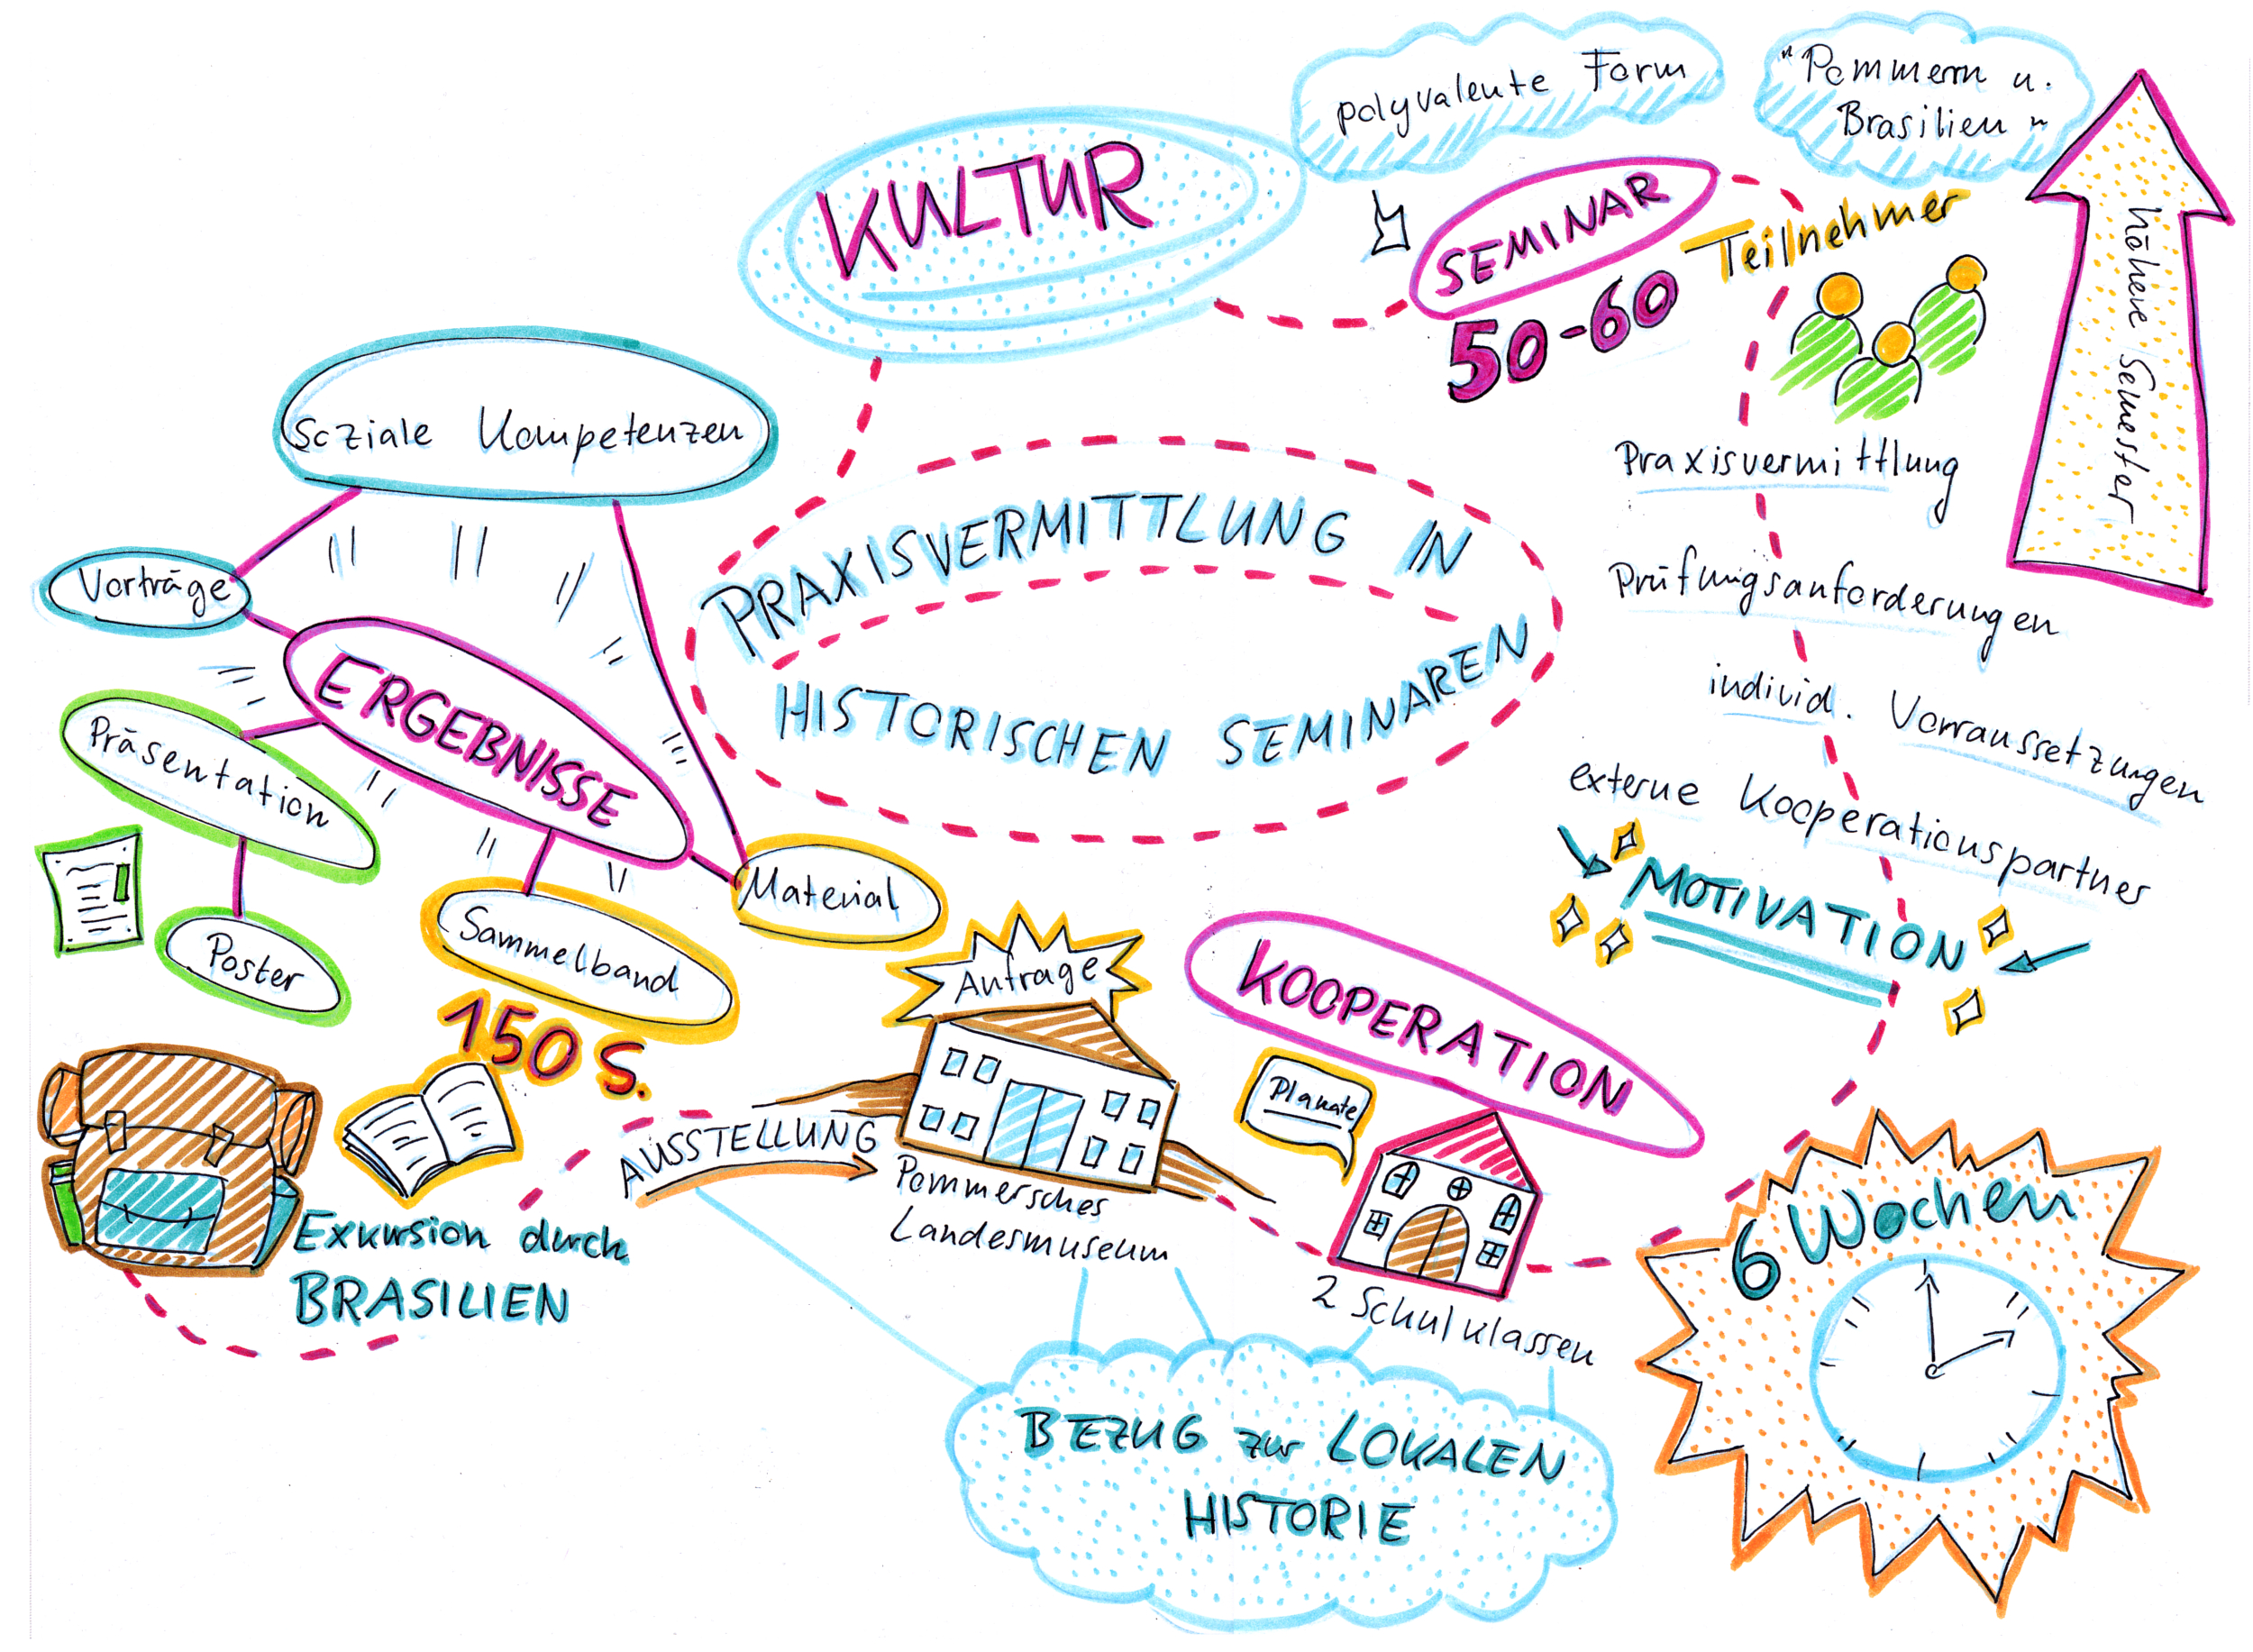 KULTUR
polyvalente Form
"Pommern u.
Brasilien"
SEMINAR
50-60 Teilnehmer
höhere Semester
Praxisvermittlung
Prüfungsanforderungen
individ. Vorraussetzungen
externe Kooperationspartner
MOTIVATION
6 Wochen
PRAXISVERMITTLUNG IN
HISTORISCHEN SEMINAREN
soziale Kompetenzen
Vorträge
ERGEBNISSE
Präsentation
Poster
Sammelband
150 S.
Material
Anfrage
KOOPERATION
Plakate
AUSSTELLUNG
Pommersches
Landesmuseum
2 Schulklassen
Exkursion durch
BRASILIEN
BEZUG zur LOKALEN
HISTORIE